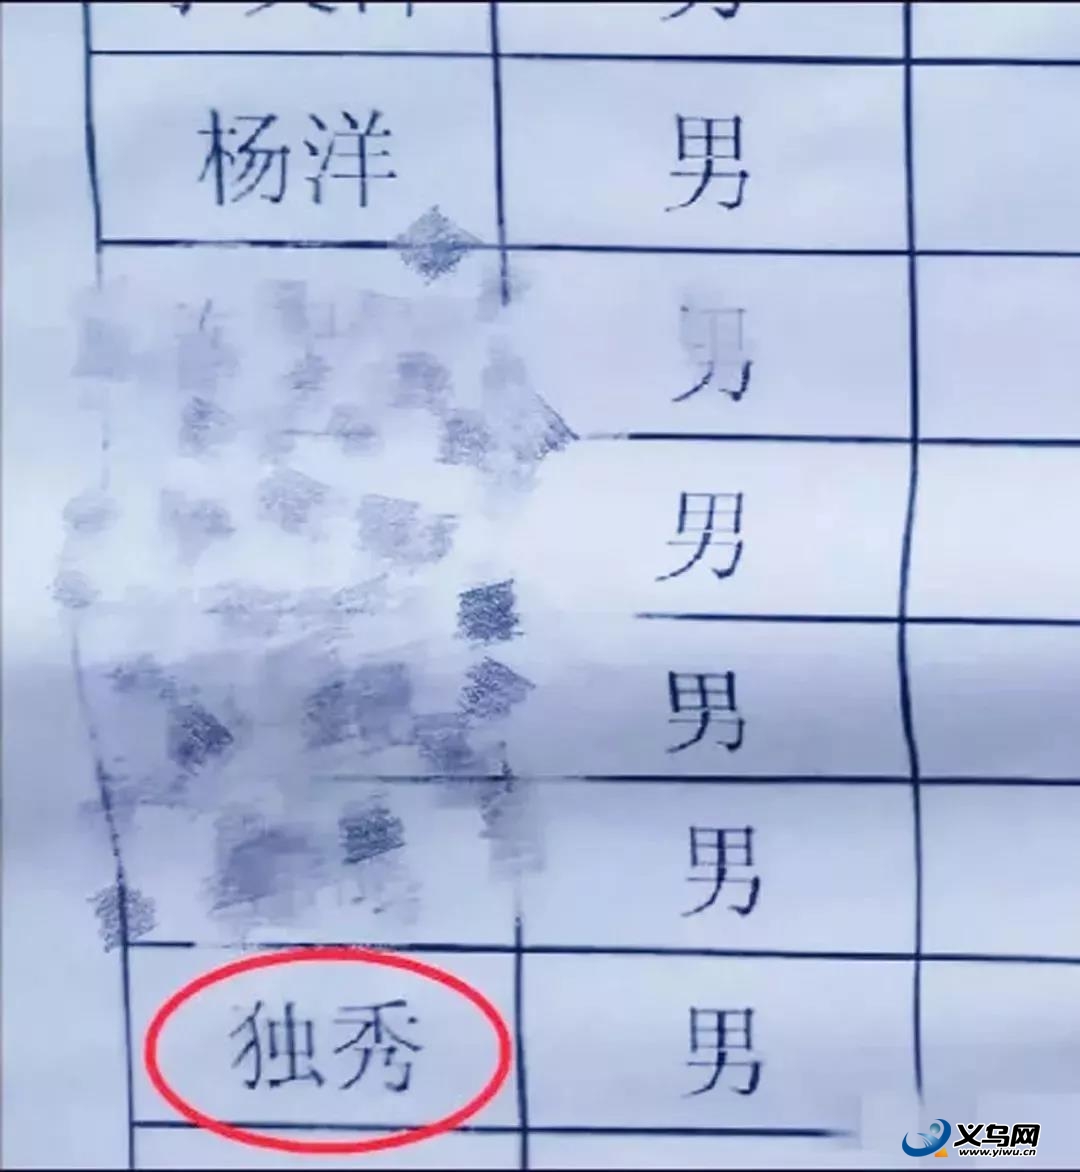 男
杨洋 男
男
男
男
男
独秀 男
义乌网
www.yiwu.cn